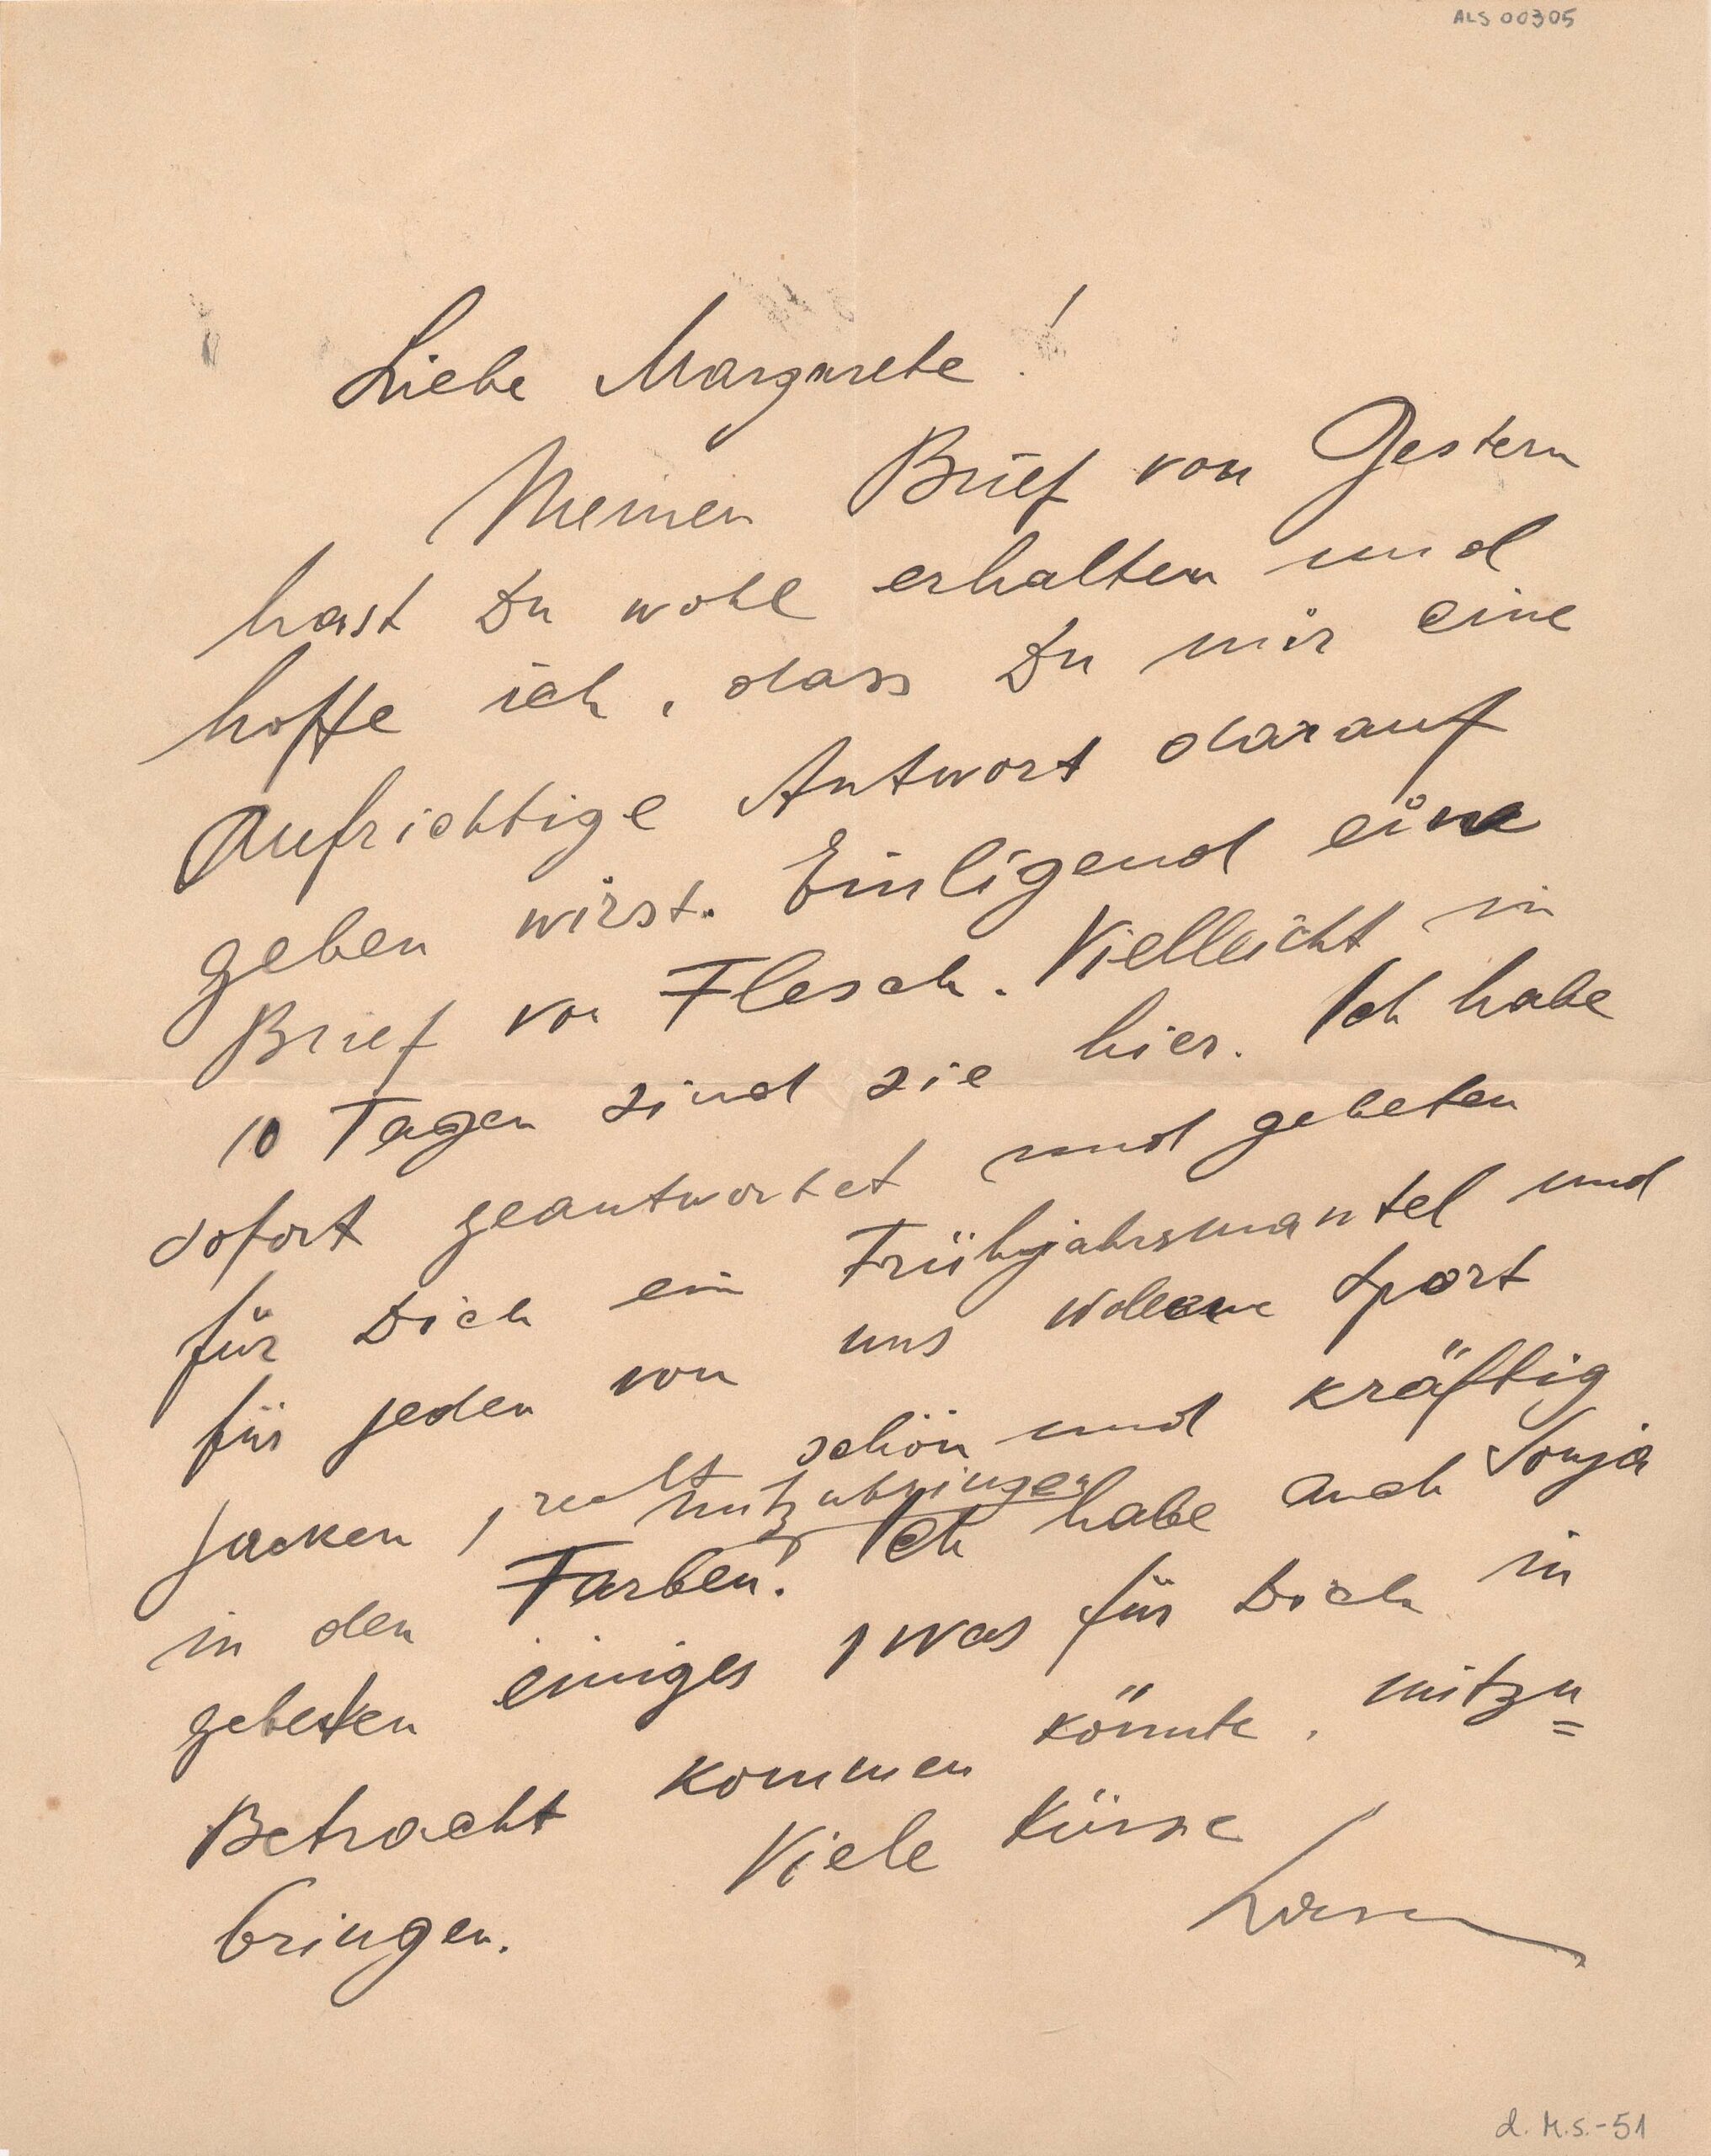 ALS 00305
Liebe Margarete!
Meinen Brief von Gestern
hast Du wohl erhalten und
hoffe ich, dass Du mir eine
Aufrichtige Antwort darauf
geben wirst. Einligend eine
Brief von Flesch. Vielleicht in
10 Tagen sind sie hier. Ich habe
sofort geantwortet und gebeten
für Dich ein Frühjahrsmantel und
für jeden von uns wollene Sport
Jacken, recht schön und kräftig
mitzubringen
in den Farben. Ich habe auch Sonja
gebeten einiges, was für Dich in
Betracht kommen könnte, mitzu=
bringen.
Viele Küsse
d. M.S.-51